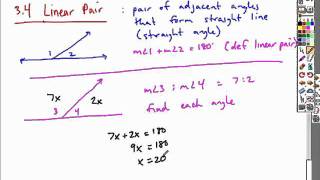 3.4 Linear Pair : pair of adjacent angles
that form straight line
(straight angle)
1 2
m∠1 + m∠2 = 180° (def linear pair)
7x 2x
3 4
m∠3 : m∠4 = 7:2
find each angle
7x + 2x = 180
9x = 180
x = 20